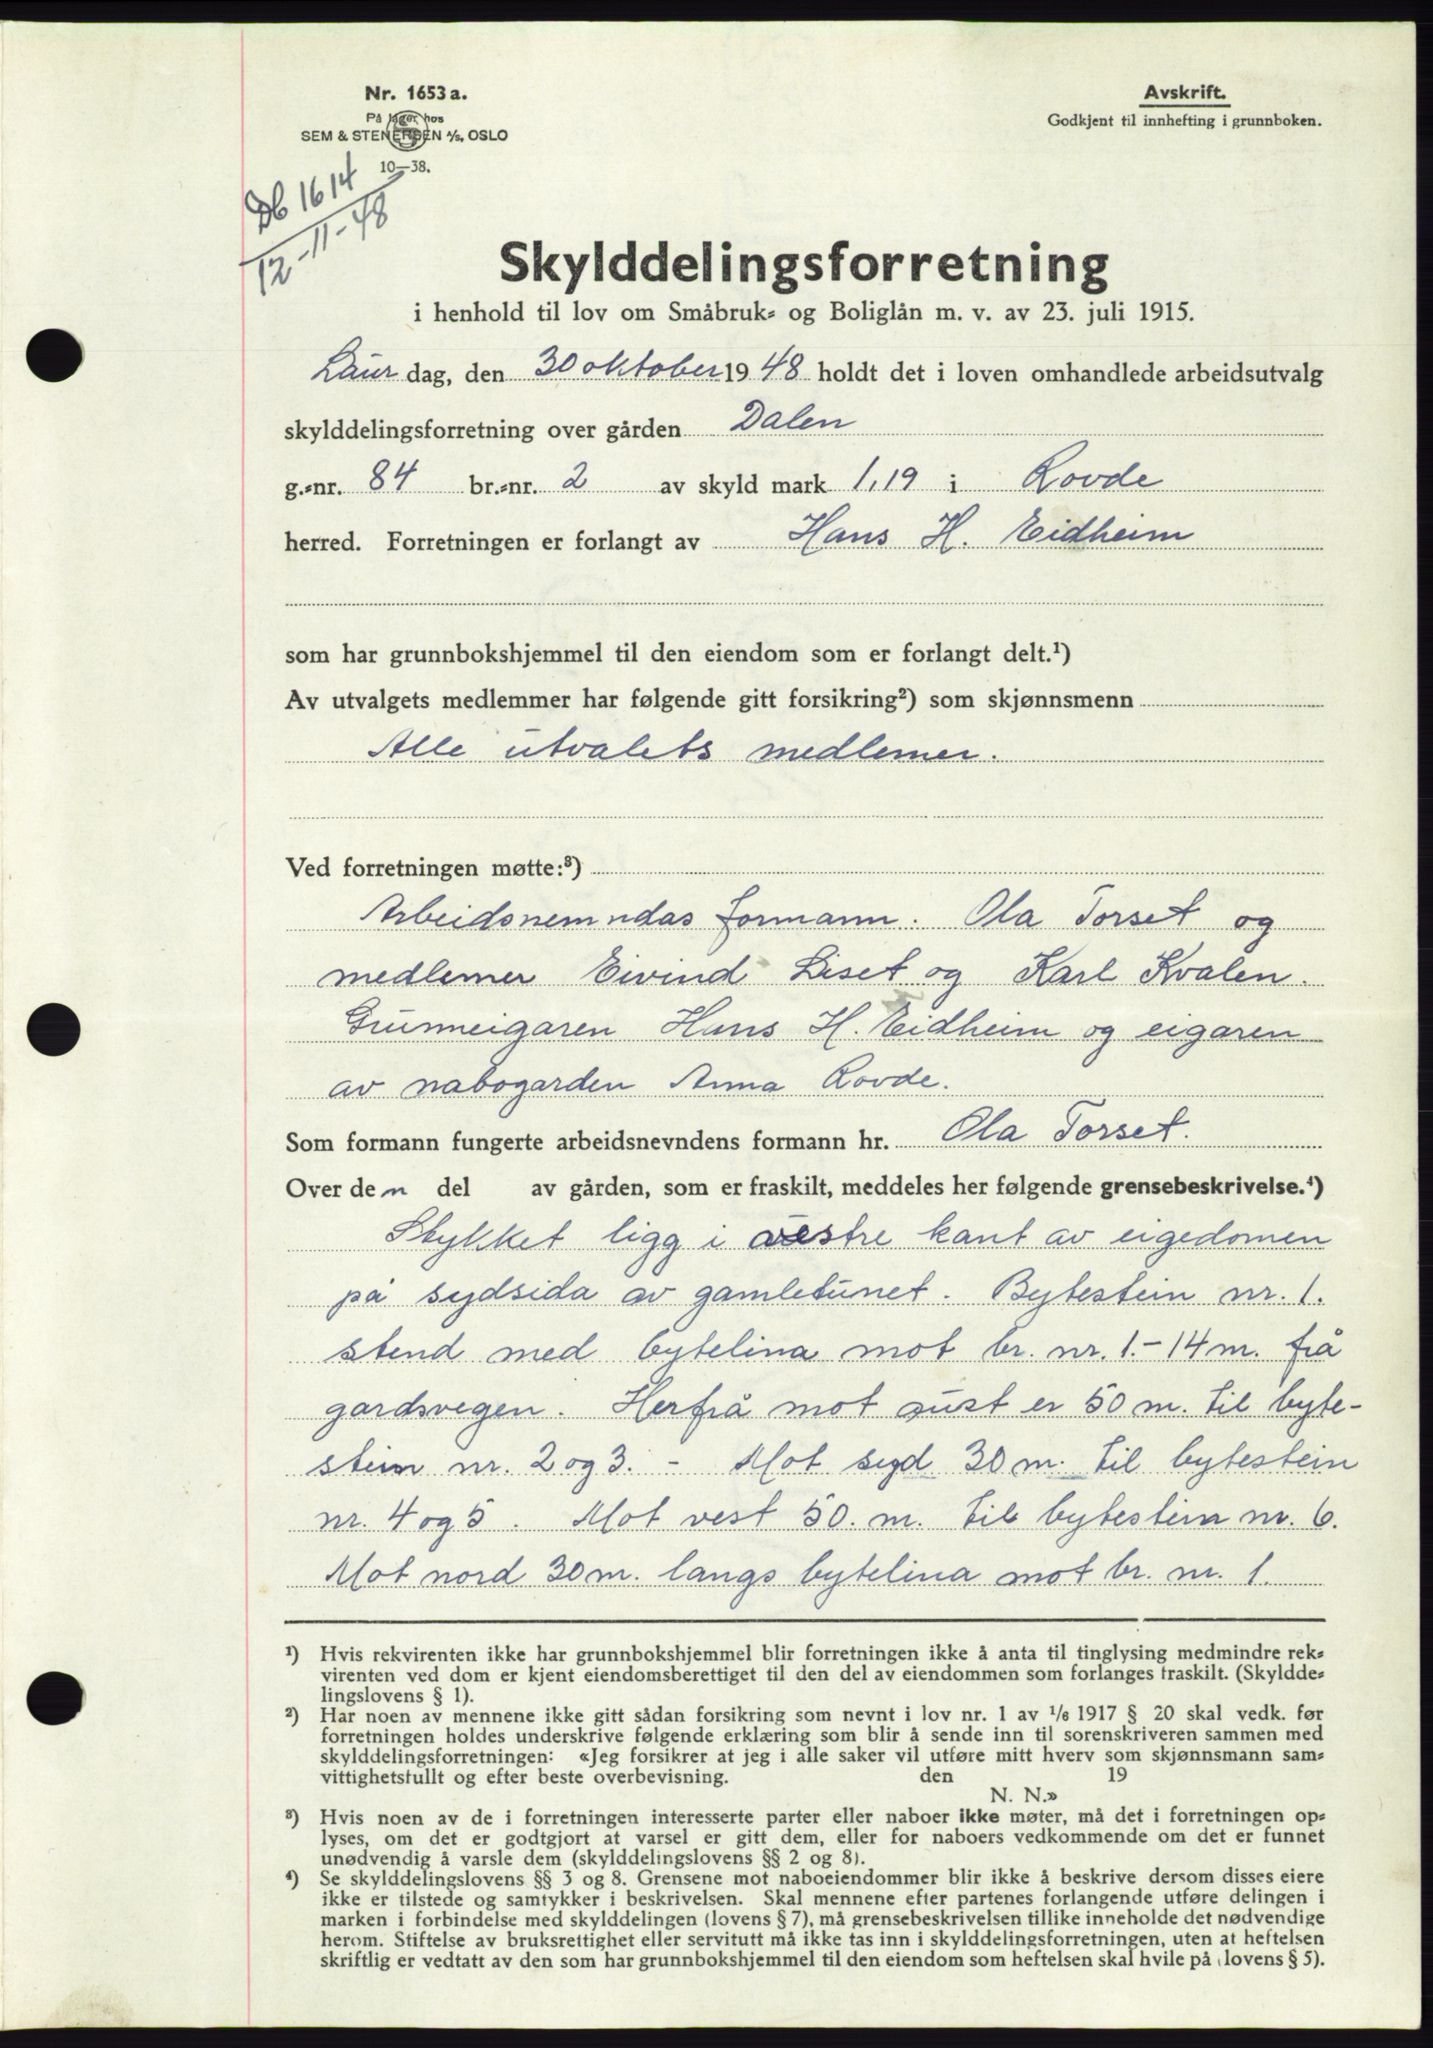 Nr. 1653 a.
På lager hos
SEM & STENERSEN A/S, OSLO
10—38.
Avskrift.
Godkjent til innhefting i grunnboken.
Db 1614
12-11-48
Skylddelingsforretning
i henhold til lov om Småbruk- og Boliglån m. v. av 23. juli 1915.
Laur dag, den 30 oktober 1948 holdt det i loven omhandlede arbeidsutvalg
skylddelingsforretning over gården Dalen
g.-nr. 84 br.-nr. 2 av skyld mark 1,19 i Rovde
herred. Forretningen er forlangt av Hans H. Eidheim
som har grunnbokshjemmel til den eiendom som er forlangt delt.¹)
Av utvalgets medlemmer har følgende gitt forsikring²) som skjønnsmenn
Alle utvalets medlemer.
Ved forretningen møtte:³)
Arbeidsnemndas formann. Ola Torset og
medlemer Eivind Liset og Karl Kvalen.
Grunneigaren Hans H. Eidheim og eigaren
av nabogarden Anna Rovde.
Som formann fungerte arbeidsnevndens formann hr. Ola Torset.
Over den del av gården, som er fraskilt, meddeles her følgende grensebeskrivelse.⁴)
Stykket ligg i vestre kant av eigedomen
på sydsida av gamletunet. Bytestein nr. 1.
stend med bytelina mot br. nr. 1. - 14 m. frå
gardsvegen. Herfrå mot aust er 50 m. til byte-
stein nr. 2 og 3. - Mot syd 30 m. til bytestein
nr. 4 og 5. Mot vest 50. m. til bytestein nr. 6.
Mot nord 30 m. langs bytelina mot br. nr. 1.
¹) Hvis rekvirenten ikke har grunnbokshjemmel blir forretningen ikke å anta til tinglysing medmindre rek-
virenten ved dom er kjent eiendomsberettiget til den del av eiendommen som forlanges fraskilt. (Skyldde-
lingslovens § 1).
²) Har noen av mennene ikke gitt sådan forsikring som nevnt i lov nr. 1 av 1/6 1917 § 20 skal vedk. før
forretningen holdes underskrive følgende erklæring som blir å sende inn til sorenskriveren sammen med
skylddelingsforretningen: «Jeg forsikrer at jeg i alle saker vil utføre mitt hverv som skjønnsmann sam-
vittighetsfullt og efter beste overbevisning. den 19
N. N.»
³) Hvis noen av de i forretningen interesserte parter eller naboer ikke møter, må det i forretningen op-
lyses, om det er godtgjort at varsel er gitt dem, eller for naboers vedkommende om det er funnet
unødvendig å varsle dem (skylddelingslovens §§ 2 og 8).
⁴) Se skylddelingslovens §§ 3 og 8. Grensene mot naboeiendommer blir ikke å beskrive dersom disses eiere
ikke er tilstede og samtykker i beskrivelsen. Skal mennene efter partenes forlangende utføre delingen i
marken i forbindelse med skylddelingen (lovens § 7), må grensebeskrivelsen tillike inneholde det nødvendige
herom. Stiftelse av bruksrettighet eller servitutt må ikke tas inn i skylddelingsforretningen, uten at heftelsen
skriftlig er vedtatt av den som har grunnbokshjemmel til den eiendom som heftelsen skal hvile på (lovens § 5).